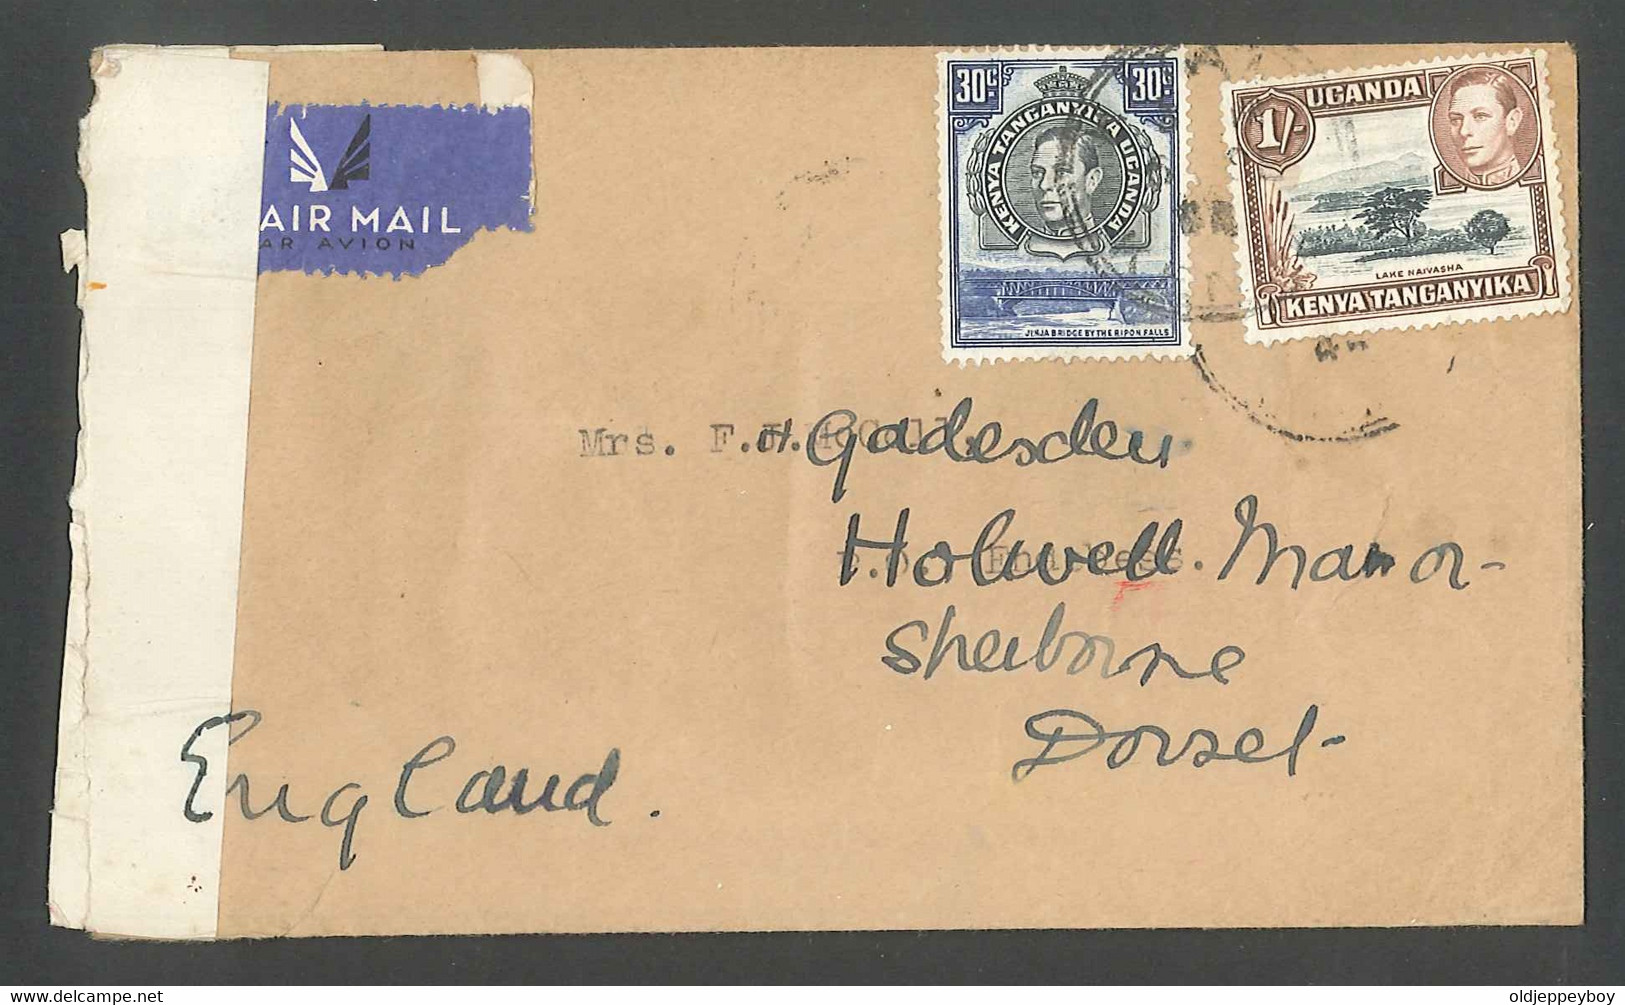 AIR MAIL
AR AVION
30c 30c
KENYA TANGANYIKA UGANDA
JINJA BRIDGE BY THE RIPON FALLS
UGANDA
1/-
LAKE NAIVASHA
KENYA TANGANYIKA
Mrs. F. H. Gadesden
Holwell Manor-
Sherborne
Dorset-
England.
oldjeppeyboy